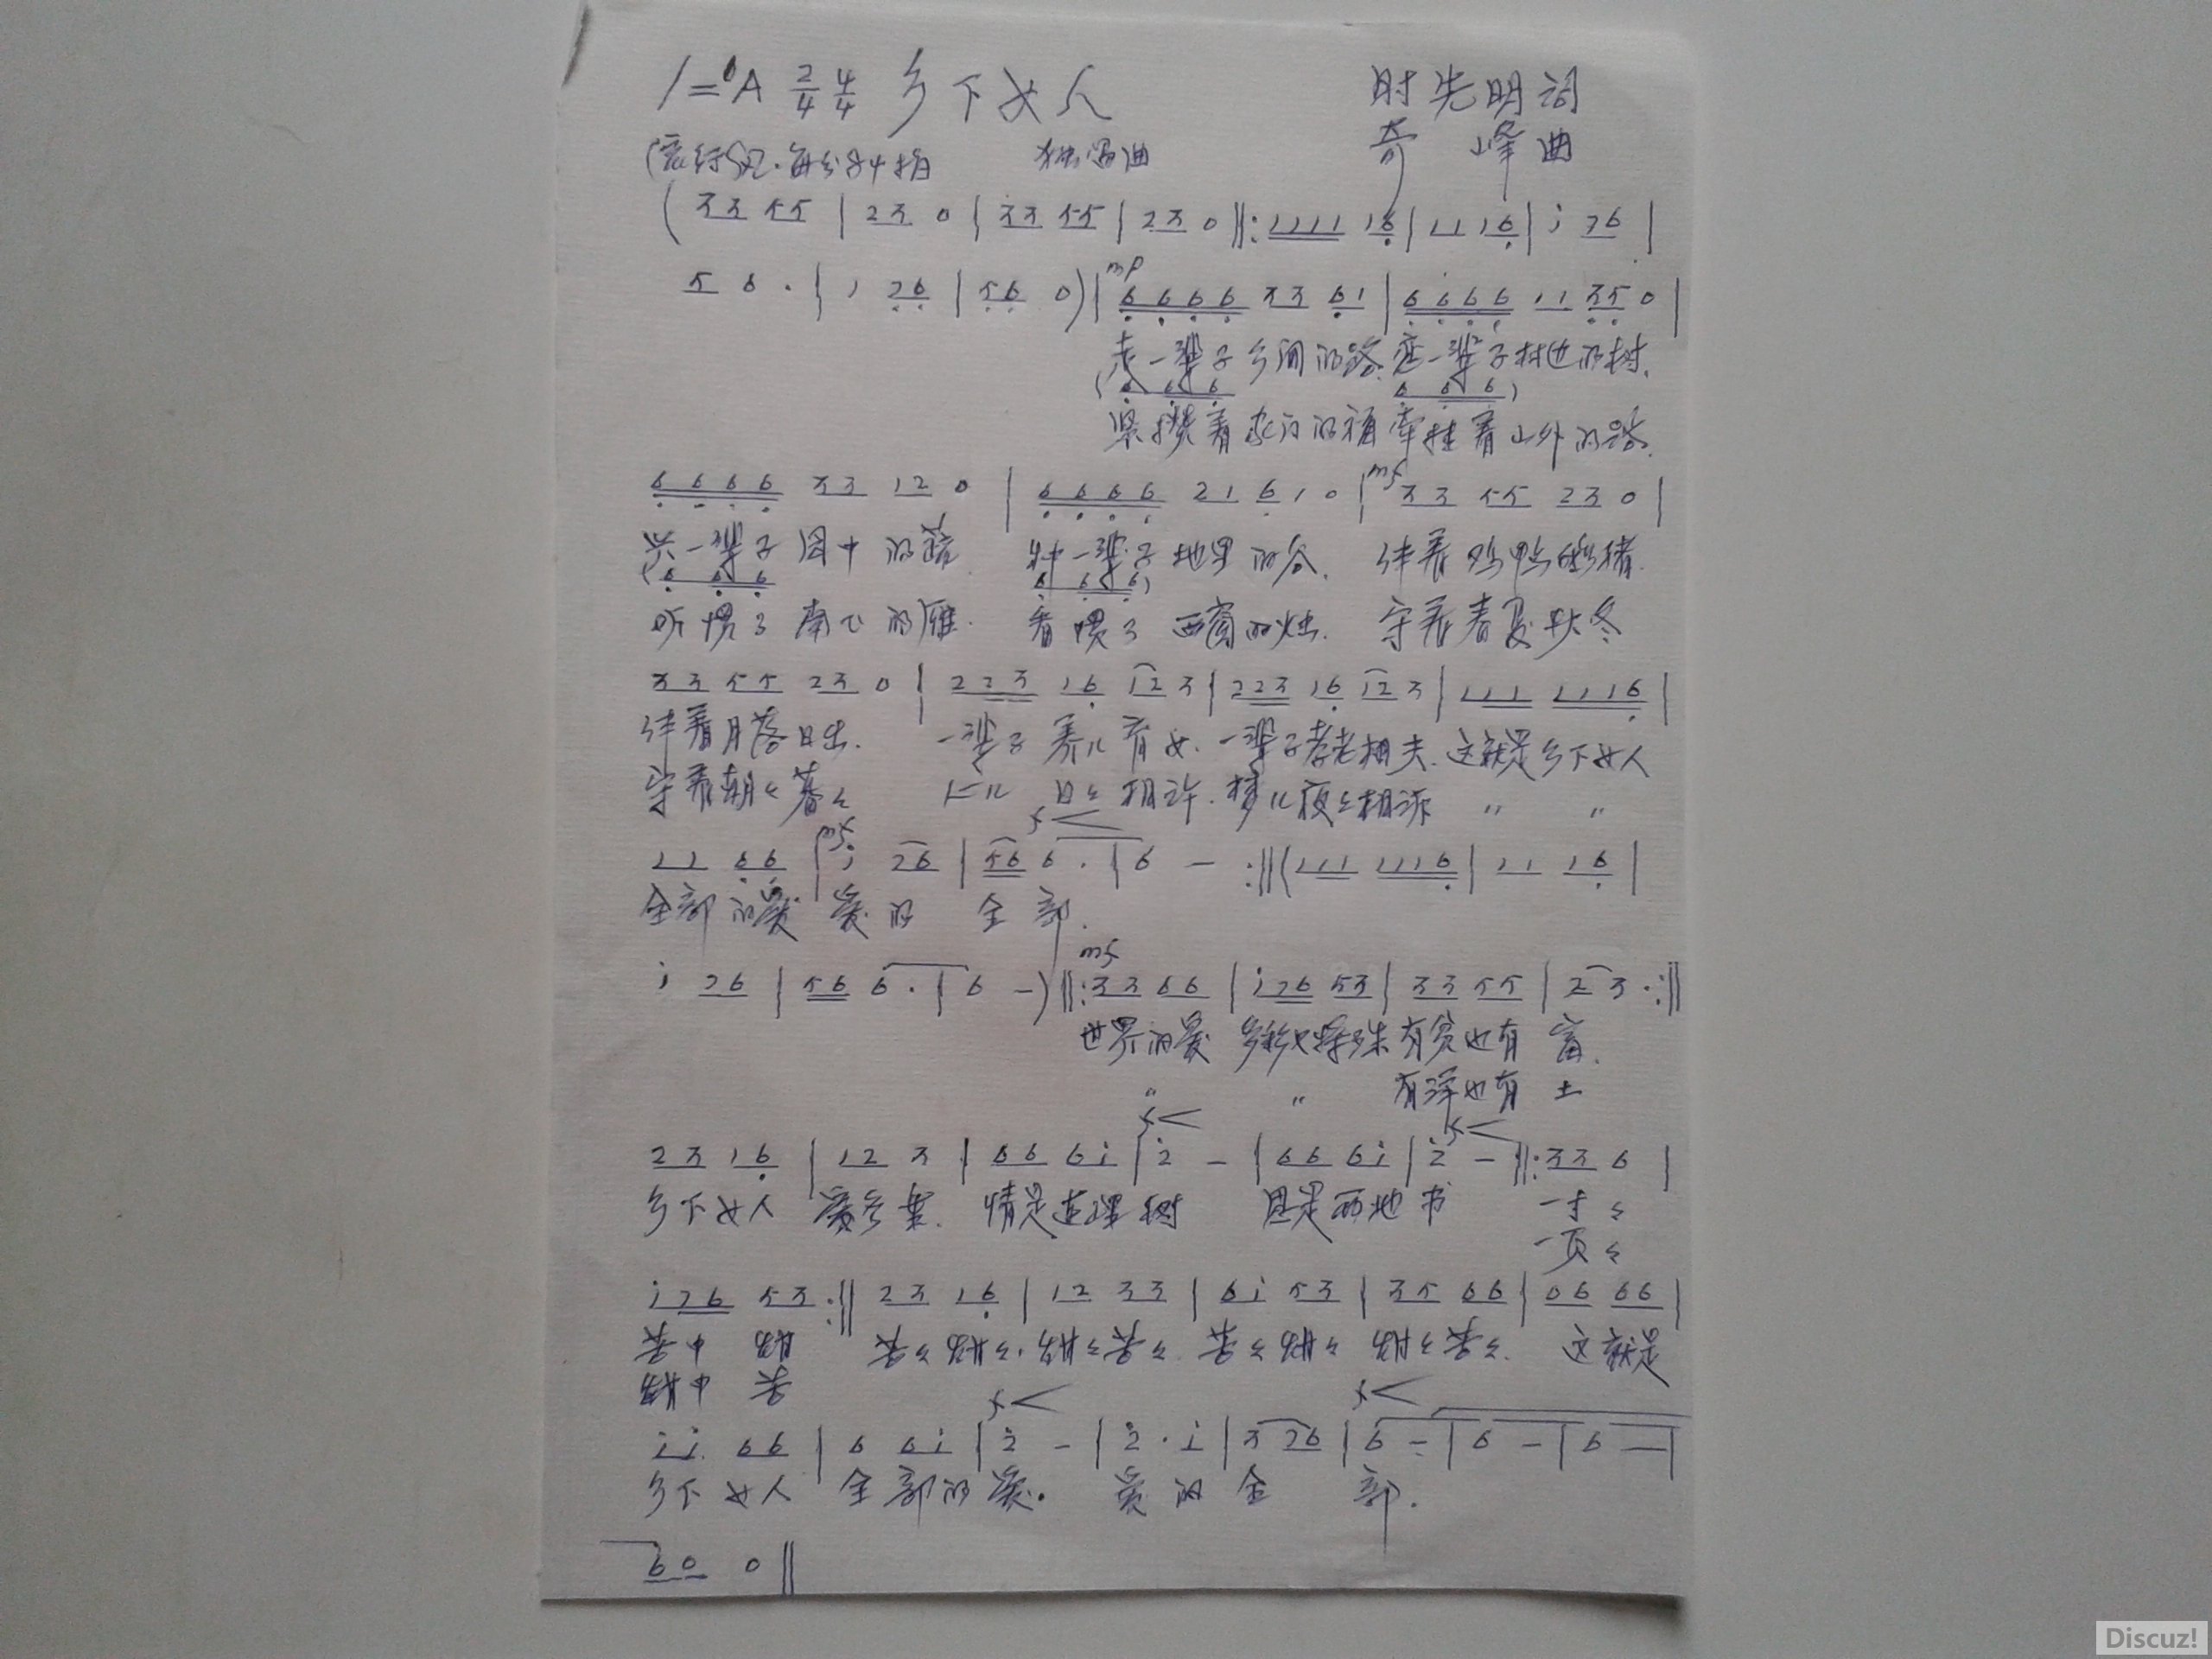 1=♭A 2/4 4/4 乡下女人 时先明词
奇 峰曲
(33 55 | 23 0 | 33 55 | 23 0 ‖: 1111 16 | 11 16 | i 76 |
5 6 · | 1 76 | 56 0) | mp 6666 33 61 | 6666 11 35 0 |
一辈子乡间的路. 一辈子村边的树.
(6 6 6 6 6 6)
紧攥着 的福 牵挂着山外的路.
6666 33 12 0 | 6666 21 6 1 0 | mf 33 55 23 0 |
一辈子园中的蔬 种一辈子地里的谷. 伴着鸡鸭 猪.
(6 6 6 6 6 6)
听惯了南飞的雁. 看惯了西窗的烛. 守着春夏秋冬
33 55 23 0 | 223 16 i2 3 | 223 16 i2 3 | 111 1116 |
伴着月落日出. 一辈子养儿育女. 一辈子孝老相夫. 这就是乡下女人
守着朝〻暮〻 日〻相许. 梦儿夜〻相 〃 〃
f <
11 66 | mf i 76 | 56 6 · | 6 - :‖ (111 1116 | 11 16 |
全部的爱 爱的 全 部.
i 76 | 56 6 · | 6 -) ‖: mf 33 66 | i76 53 | 33 55 | 2 3 · :‖
世界的爱 多 特殊 有贫也有 富.
〃 〃 有洋也有 土
f < f <
23 16 | 12 3 | 66 6i | 2 - | 66 6i | 2 - ‖: 33 6 |
乡下女人 爱多 . 情是连理树 恩是两地书 一寸〻
一页〻
i76 53 :‖ 23 16 | 12 33 | 6i 53 | 35 66 | 06 66 |
苦中 甜 苦〻甜〻. 甜〻苦〻. 苦〻甜〻 甜〻苦〻. 这就是
甜中 苦
f < f <
ii 66 | 6 6i | 2 - | 2 · i | 3 76 | 6 - | 6 - | 6 - |
乡下女人 全部的爱. 爱的全 部.
60 0 ‖
Discuz!